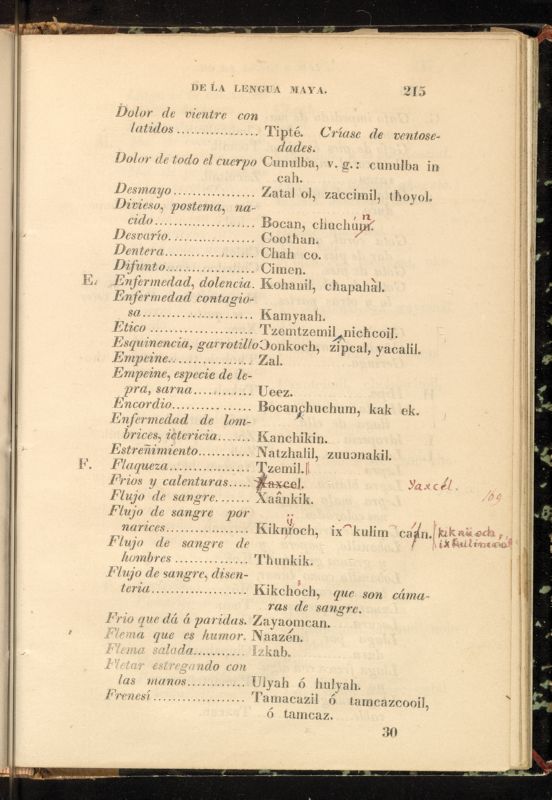 DE LA LENGUA MAYA. 215
Dolor de vientre con
latidos.................. Tipté. Críase de ventose-
dades.
Dolor de todo el cuerpo Cunulba, v. g.: cunulba in
cah.
Desmayo................. Zatal ol, zaccimil, thoyol.
Divieso, postema, na-
cido..................... Bocan, chuchúm. n
Desvarío................. Coothan.
Dentera.................. Chah co.
Difunto.................. Cimen.
E. Enfermedad, dolencia. Kohanil, chapahal.
Enfermedad contagio-
sa....................... Kamyaah.
Ético ................... Tzemtzemil, nichcoil.
Esquinencia, garrotillo Ɔonkoch, zipcal, yacalil.
Empeine.................. Zal.
Empeine, especie de le-
pra, sarna............... Ueez.
Encordio................. Bocanchuchum, kak ek.
Enfermedad de lom-
brices, ictericia....... Kanchikin.
Estreñimiento........... Natzhalil, zuuɔnakil.
F. Flaqueza.............. Tzemil.
Frios y calenturas..... Xaxcel. Yaxcél.
Flujo de sangre....... Xaánkik.
Flujo de sangre por
narices................ Kiknioch, ix kulim caán. kiknïioch,
Flujo de sangre de
hombres ............... Thunkik.
Flujo de sangre, disen-
teria.................. Kikchoch, que son cáma-
ras de sangre.
Frio que dá á paridas. Zayaomcan.
Flema que es humor. Naazén.
Flema salada........... Izkab.
Fletar estregando con
las manos.............. Ulyah ó hulyah.
Frenesí................ Tamacazil ó tamcazcooil,
ó tamcaz.
30